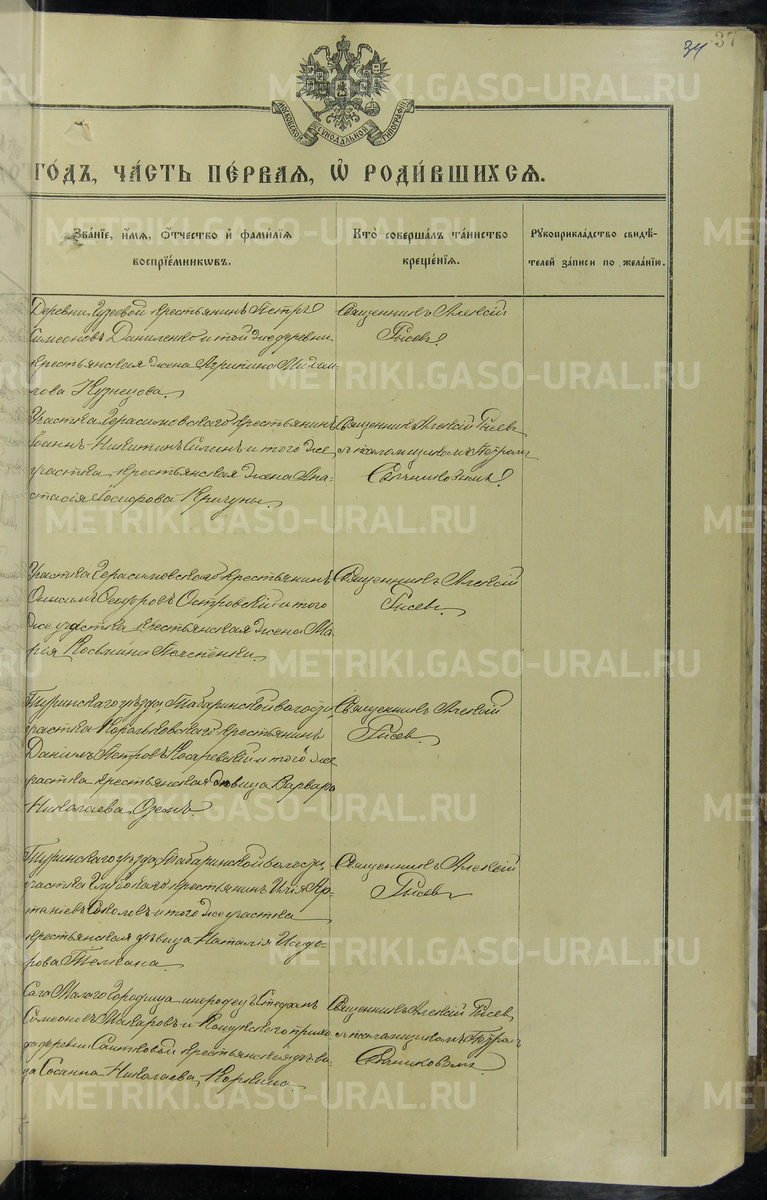 34 37
МОСКОВСКОЙ СѴНОДАЛЬНОЙ ТИПОГРАФІИ
ГОДЪ, ЧАСТЬ ПЕРВАЯ, Ѡ РОДИВШИХСѦ.
Званіе, имя, отчество и фамилія
воспріемниковъ.
Кто совершалъ таинство
крещенія.
Рукоприкладство свидѣ-
телей записи по желанію.
Деревни крестьянинъ Петръ
Симеоновъ Даниленко и той же деревни
крестьянская жена Агрипина Михаи-
лова Кузнецова.
Священникъ Алексій
Гысевъ
Участка Герасимовскаго крестьянинъ
Іоаннъ Никитинъ Силинъ и того же
участка крестьянская жена Ана-
стасія Кригунъ.
Священникъ Алексій Гысевъ
съ псаломщикомъ Петромъ
Участка Герасимовскаго крестьянинъ
Онисимъ Ѳеодоровъ Островскій и того
же участка крестьянская жена Ма-
рія Космина
Священникъ Алексій
Гысевъ
Туринскаго уѣзда, Табаринской волости,
участка крестьянинъ
Даніилъ Петровъ Косаревскій и того же
участка крестьянская дѣвица Варвара
Николаева
Священникъ Алексій
Гысевъ
Туринскаго уѣзда, Табаринской волости,
участка крестьянинъ Илія
Соколовъ и того же участка
крестьянская дѣвица Наталія Исидо-
рова
Священникъ Алексій
Гысевъ
Села Малаго Городища инородецъ Стефанъ
Симеоновъ Макаровъ и Кошукскаго прихо-
да деревни крестьянская дѣви-
ца Сосанна Николаева Коркина.
Священникъ Алексій Гысевъ,
съ псаломщикомъ Петромъ
METRIKI.GASO-URAL.RU